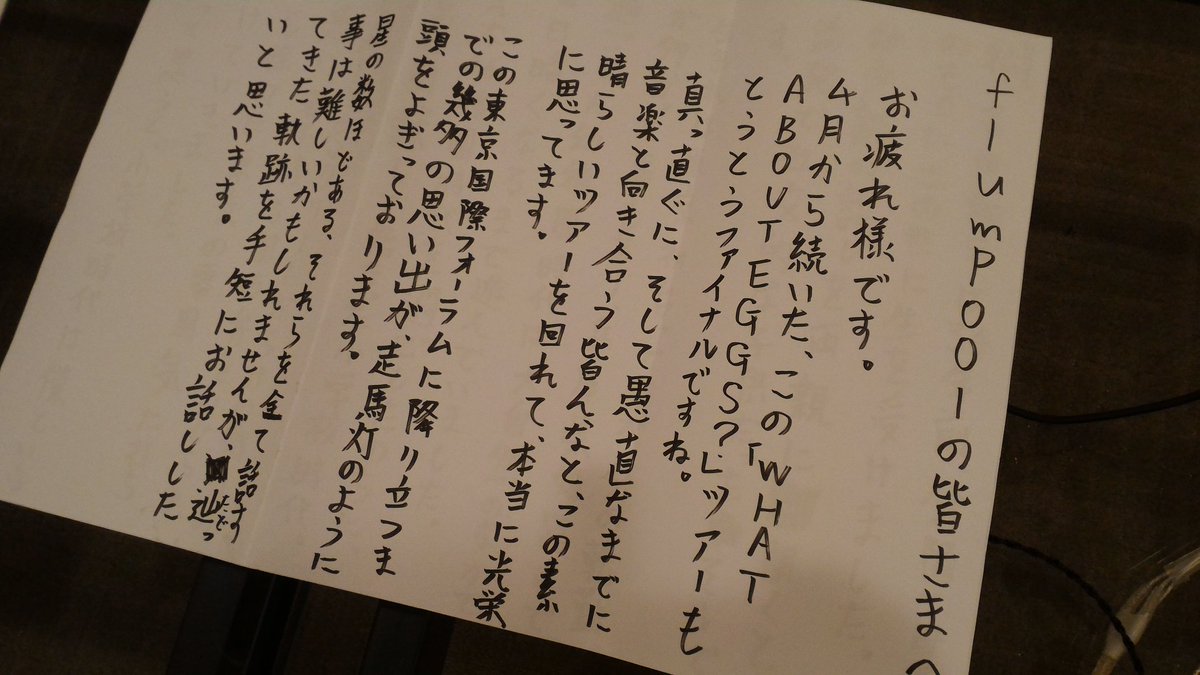 flumpoolの皆さまへ
お疲れ様です。
4月から続いた、この「WHAT
ABOUT EGGS?」ツアーも
とうとうファイナルですね。
真っ直ぐに、そして愚直なまでに
音楽と向き合う皆んなと、この素
晴らしいツアーを回れて、本当に光栄
に思ってます。
この東京国際フォーラムに降り立つま
での幾多の思い出が、走馬灯のように
頭をよぎっております。
星の数ほどである、それらを全て話す
事は難しいかもしれませんが、辿っ
たど
てきた軌跡を手短にお話しした
いと思います。